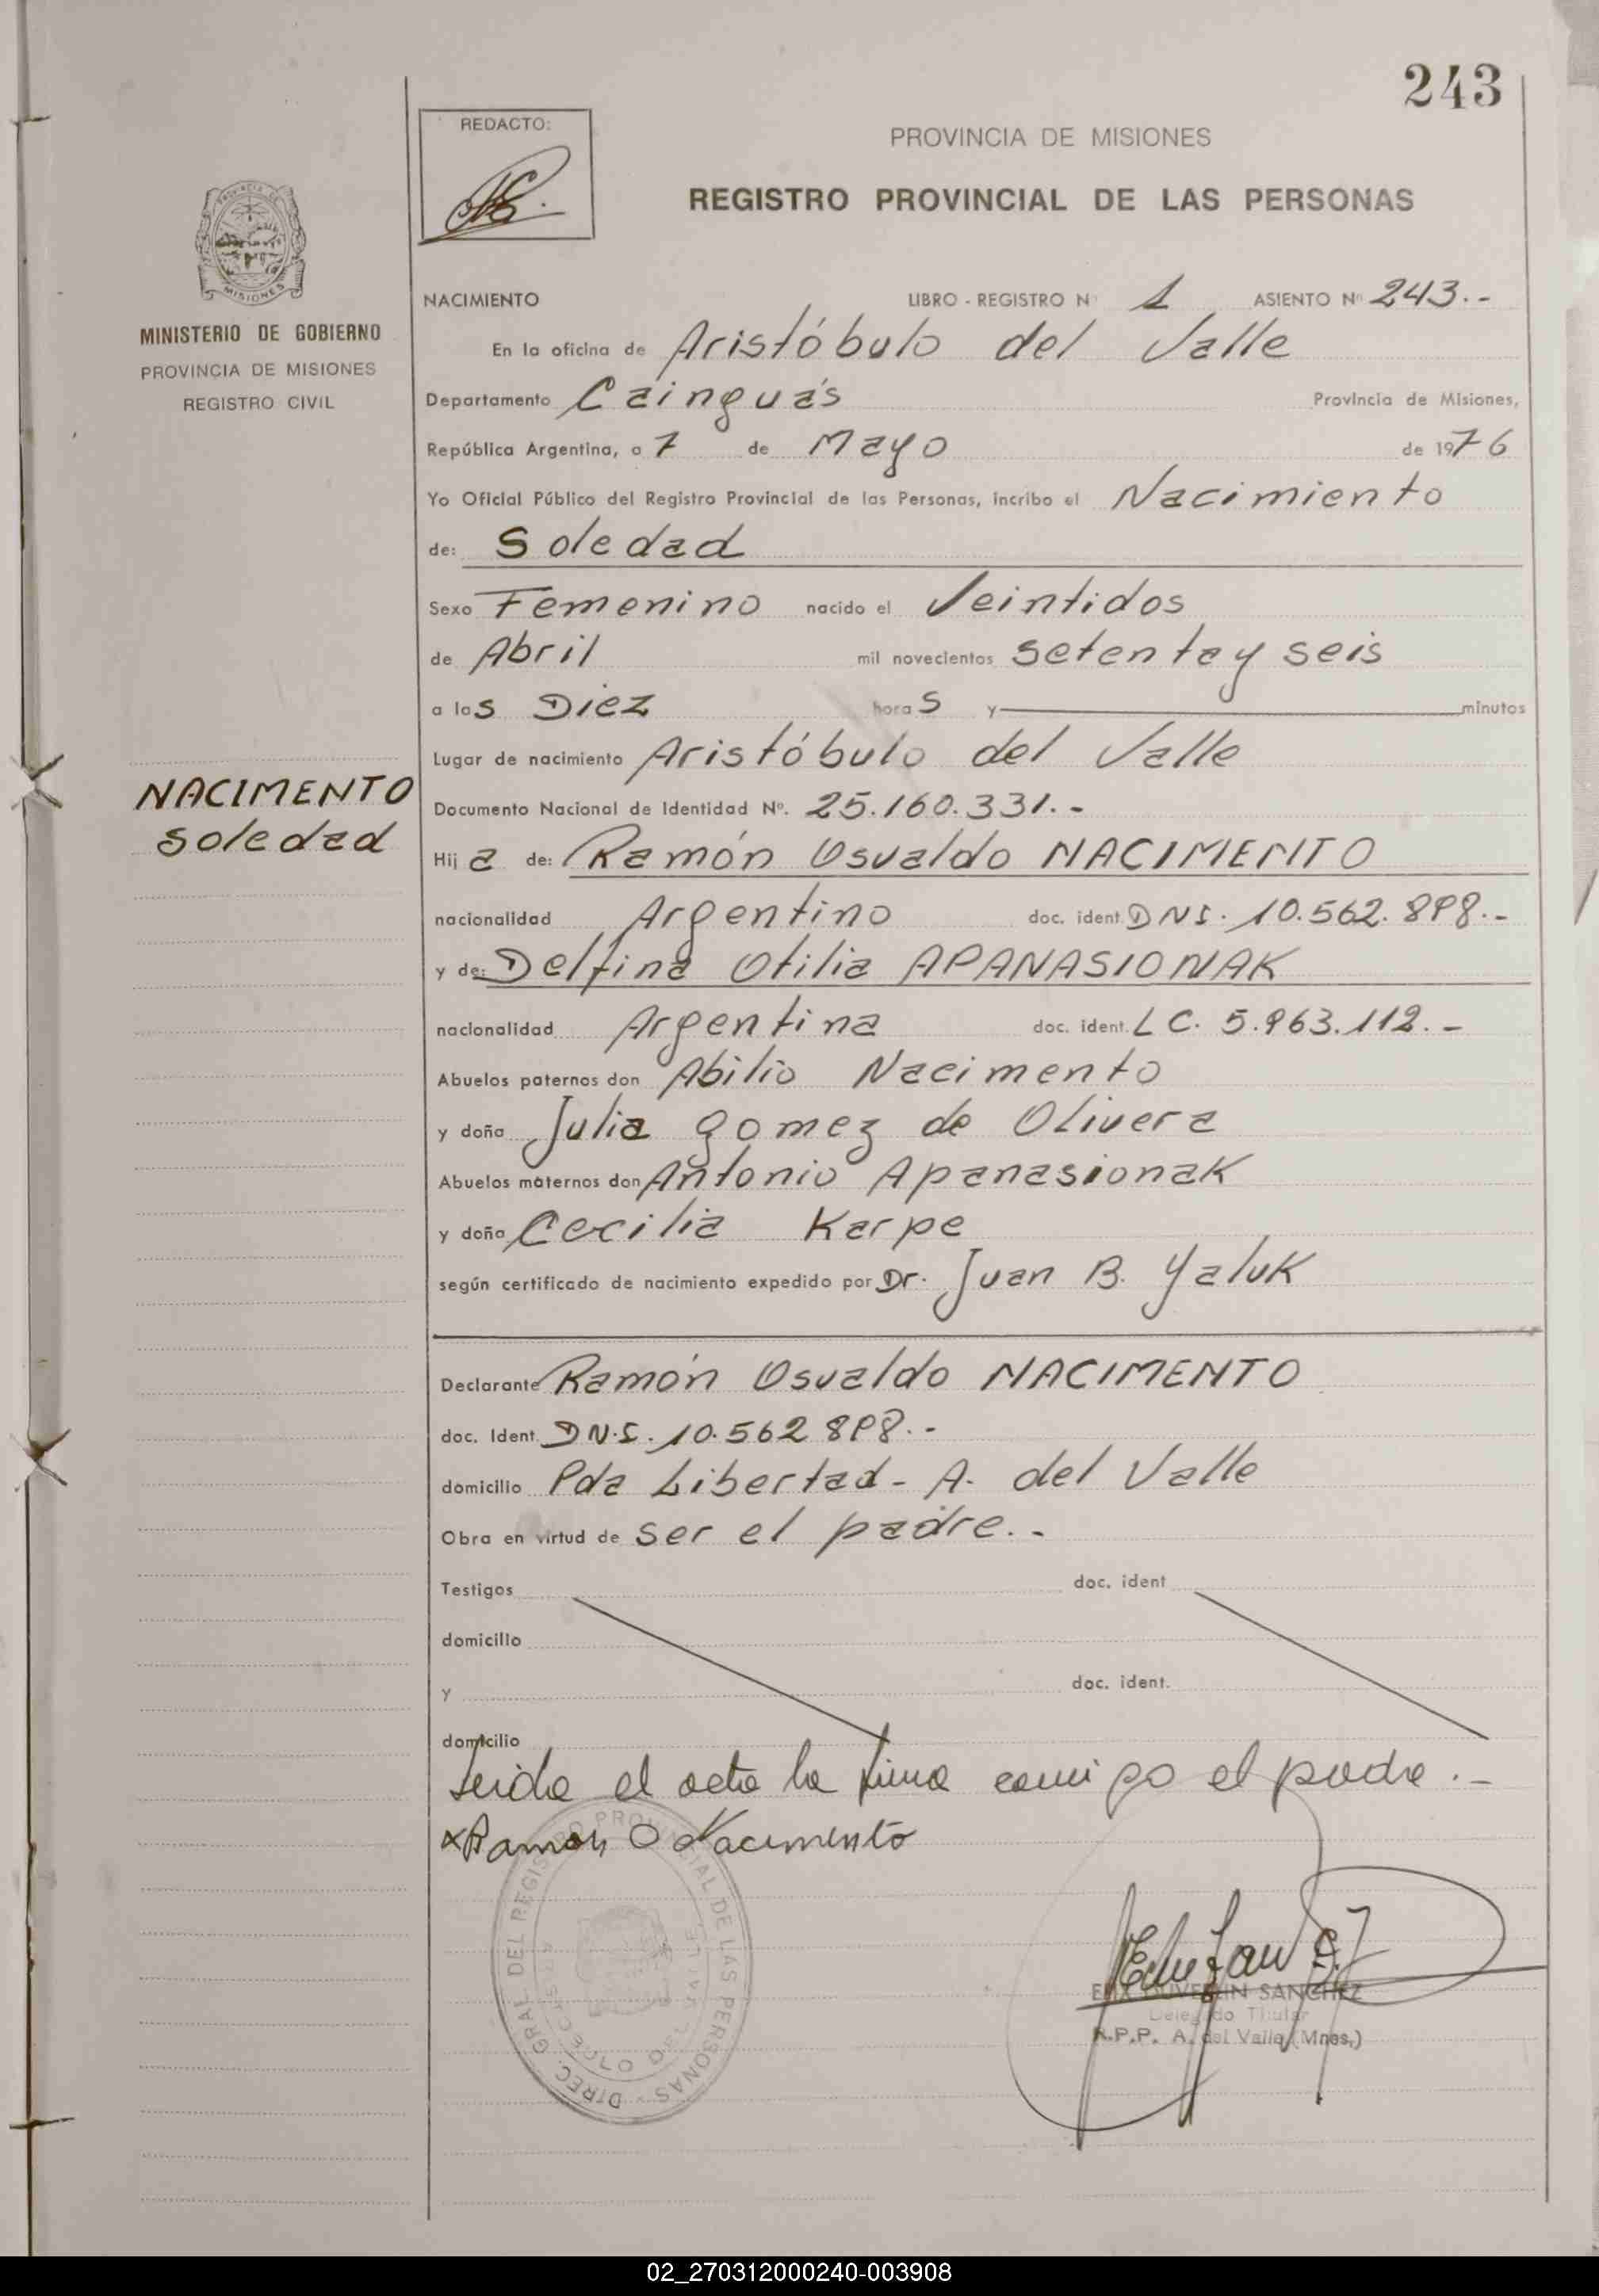 243
REDACTO:
PROVINCIA DE MISIONES
REGISTRO PROVINCIAL DE LAS PERSONAS
MISIONES
MINISTERIO DE GOBIERNO
PROVINCIA DE MISIONES
REGISTRO CIVIL
NACIMIENTO LIBRO - REGISTRO Nº 1 ASIENTO Nº 243.-
En la oficina de Aristóbulo del Valle
Departamento Cainguás Provincia de Misiones,
República Argentina, a 7 de Mayo de 1976
Yo Oficial Público del Registro Provincial de las Personas, incribo el Nacimiento
de: Soledad
Sexo Femenino nacido el Veintidos
de Abril mil novecientos setenta y seis
a las Diez horas y minutos
Lugar de nacimiento Aristóbulo del Valle
NACIMENTO
Soledad
Documento Nacional de Identidad Nº. 25.160.331.-
Hija de: Ramón Osvaldo NACIMENTO
nacionalidad Argentino doc. ident. DNI. 10.562.898.-
y de: Delfina Otilia APANASIONAK
nacionalidad Argentina doc. ident. LC. 5.963.112.-
Abuelos paternos don Abilio Nacimento
y doña Julia Gomez de Olivera
Abuelos maternos don Antonio Apanasionak
y doña Cecilia Karpe
según certificado de nacimiento expedido por Dr. Juan B. Yaluk
Declarante Ramón Osvaldo NACIMENTO
doc. Ident. DN.I. 10.562 898.-
domicilio Pda Libertad - A. del Valle
Obra en virtud de ser el padre.-
Testigos doc. ident
domicilio
y doc. ident.
domicilio
Leida el acta la firma conmigo el padre.-
x Ramon O Nacimento
DIREC. GRAL DEL REGISTRO PROVINCIAL DE LAS PERSONAS -
SANCHEZ
Delegado Titular
R.P.P. A. del Valle (Mnes.)
02_270312000240-003908